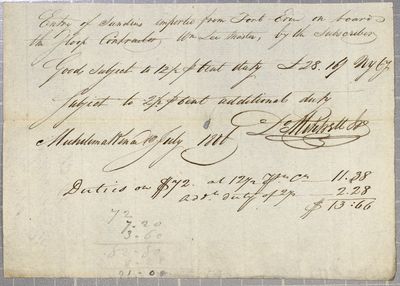 Entry of Sundries imported from Fort Erie on board
the Sloop Contractor, Wm Lee Master, by the Subscriber
Good subject to 12½ ⅌ Cent duty £28.16/ NyCy
subject to 2½ ⅌ Cent additional duty
Michilimakinac July 1806
Duties on $72. at 12½ ⅌r Ct 11.38
Add.l duty of 2½ 2.28
$ 13.66
72
7.20
3.60